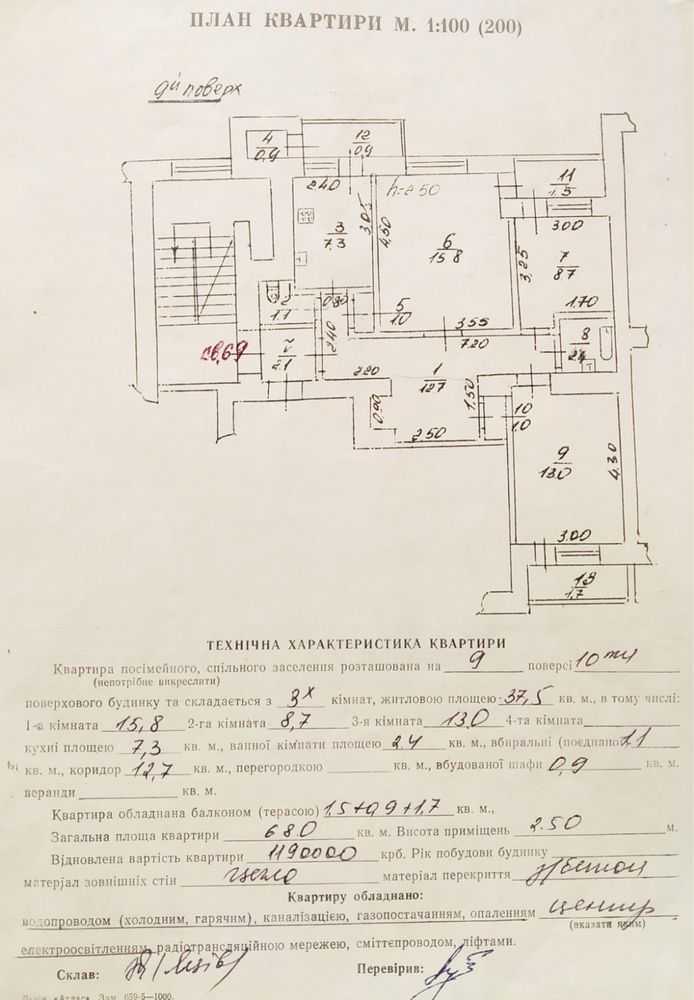 ПЛАН КВАРТИРИ М. 1:100 (200)
9й поверх
4
0,9
12
0,9
2.40
h=2.50
11
1.5
3.00
3
7.3
3.05
4.50
6
15.8
3.25
7
8.7
1.70
2
1.1
0.80
5
1.0
3.55
7.20
8
2.4
68,69
2.1
2.40
2.20
1
12.7
0.90
1.50
2.50
10
1.0
9
13.0
4.30
3.00
13
1.7
ТЕХНІЧНА ХАРАКТЕРИСТИКА КВАРТИРИ
Квартира посімейного, спільного заселення розташована на 9 поверсі 10ти
(непотрібне викреслити)
поверхового будинку та складається з 3х кімнат, житловою площею 37,5 кв. м., в тому числі:
1-а кімната 15,8 2-га кімната 8,7 3-я кімната 13.0 4-та кімната
кухні площею 7,3 кв. м., ванної кімнати площею 2.4 кв. м., вбиральні (поєднано) 1.1
кв. м., коридор 12,7 кв. м., перегородкою кв. м., вбудованої шафи 0,9 кв. м.
веранди кв. м.
Квартира обладнана балконом (терасою) 1.5+0,9+1.7 кв. м.,
Загальна площа квартири 68.0 кв. м. Висота приміщень 2.50 м.
Відновлена вартість квартири 1190000 крб. Рік побудови будинку
матеріал зовнішніх стін цегла матеріал перекриття з/бетон
Квартиру обладнано:
водопроводом (холодним, гарячим), каналізацією, газопостачанням, опаленням центр
(вказати яким)
електроосвітленням, радіотрансляційною мережею, сміттєпроводом, ліфтами.
Склав: Перевірив:
«Атлас» Зам. 659-5—1000.